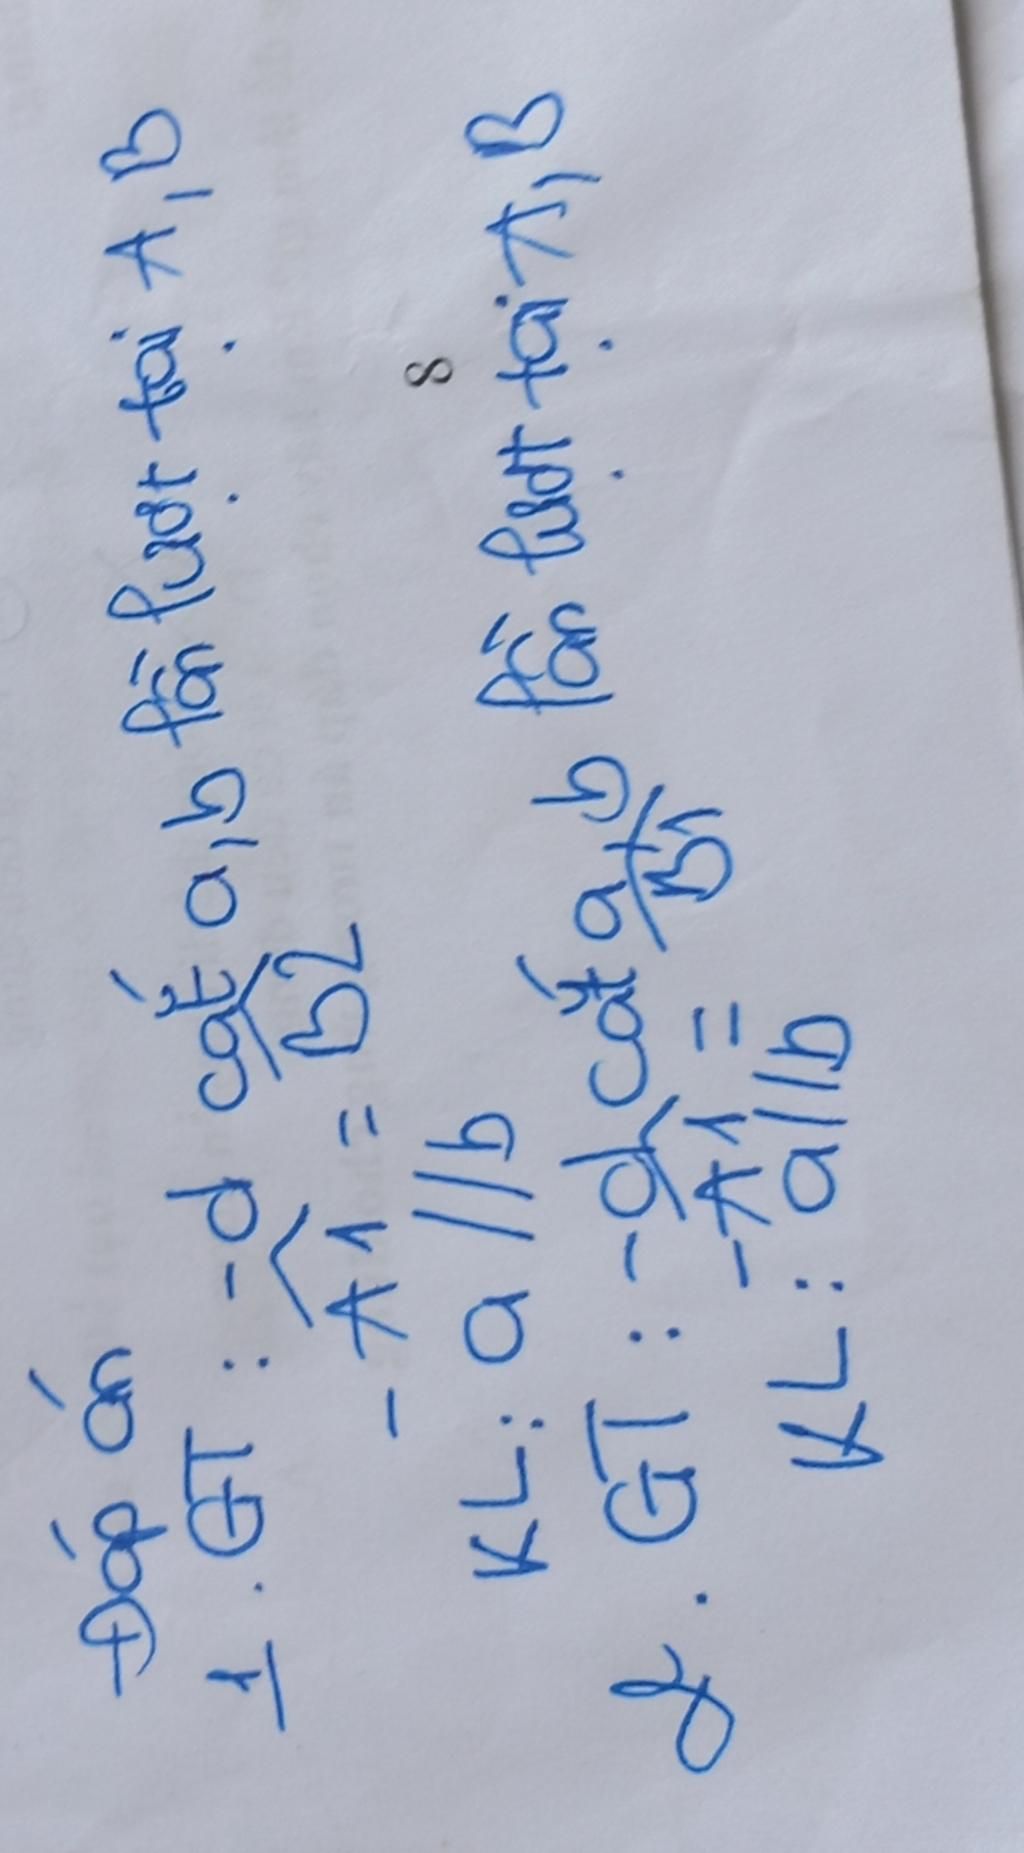 Đáp án
1. GT : - d cắt a, b lần lượt tại A, B
- Â1 = B̂2
KL : a // b
8
2. GT : - d cắt a, b lần lượt tại A, B
- Â1 = B̂1
KL : a // b